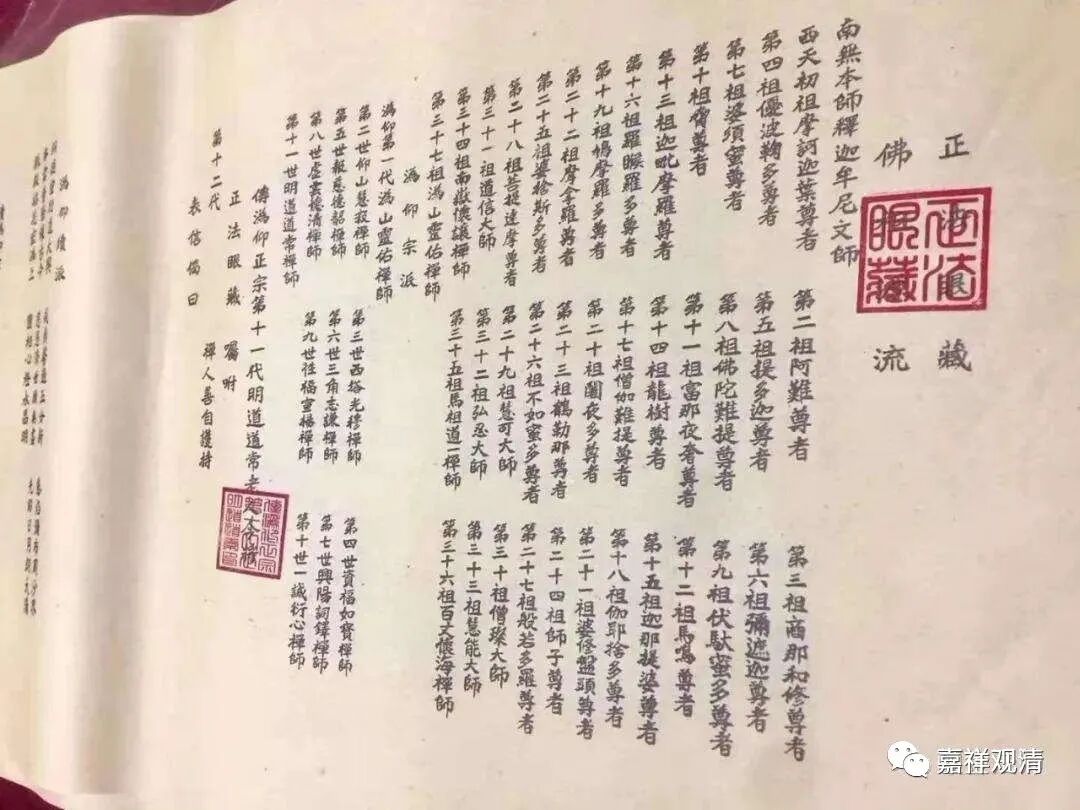 正法眼藏
佛 流
正法眼藏
南無本師釋迦牟尼文師
西天初祖摩訶迦葉尊者
第二祖阿難尊者
第三祖商那和修尊者
第四祖優波鞠多尊者
第五祖提多迦尊者
第六祖彌遮迦尊者
第七祖婆須蜜尊者
第八祖佛陀難提尊者
第九祖伏馱蜜多尊者
第十祖脅尊者
第十一祖富那夜奢尊者
第十二祖馬鳴尊者
第十三祖迦毗摩羅尊者
第十四祖龍樹尊者
第十五祖迦那提婆尊者
第十六祖羅睺羅多尊者
第十七祖僧伽難提尊者
第十八祖伽耶捨多尊者
第十九祖鳩摩羅多尊者
第二十祖闍夜多尊者
第二十一祖婆修盤頭尊者
第二十二祖摩拿羅尊者
第二十三祖鶴勒那尊者
第二十四祖師子尊者
第二十五祖婆捨斯多尊者
第二十六祖不如蜜多尊者
第二十七祖般若多羅尊者
第二十八祖菩提達摩尊者
第二十九祖慧可大師
第三十祖僧璨大師
第三十一祖道信大師
第三十二祖弘忍大師
第三十三祖慧能大師
第三十四祖南嶽懷讓禪師
第三十五祖馬祖道一禪師
第三十六祖百丈懷海禪師
第三十七祖溈山靈佑禪師
溈仰宗派
溈仰第一代溈山靈佑禪師
第二世仰山慧寂禪師
第三世西塔光穆禪師
第四世資福如寶禪師
第五世報慈德韶禪師
第六世三角志謙禪師
第七世興陽詞鐸禪師
第八世虛雲演清禪師
第九世性福宣揚禪師
第十世一誠衍心禪師
第十一世明道道常禪師
傳溈仰正宗第十一代明道道常老
正法眼藏 囑咐
第十二代 禪人善自護持
表信偈曰
溈仰續派
嘉祥观清